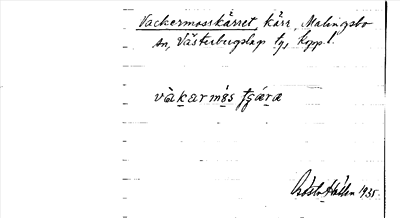 Vackermosskärret, kärr, Malingsbo
sn, Västerbergslags tgs Kopp. l.
vàkarmås tjæra
Gösta Hallén 1935.